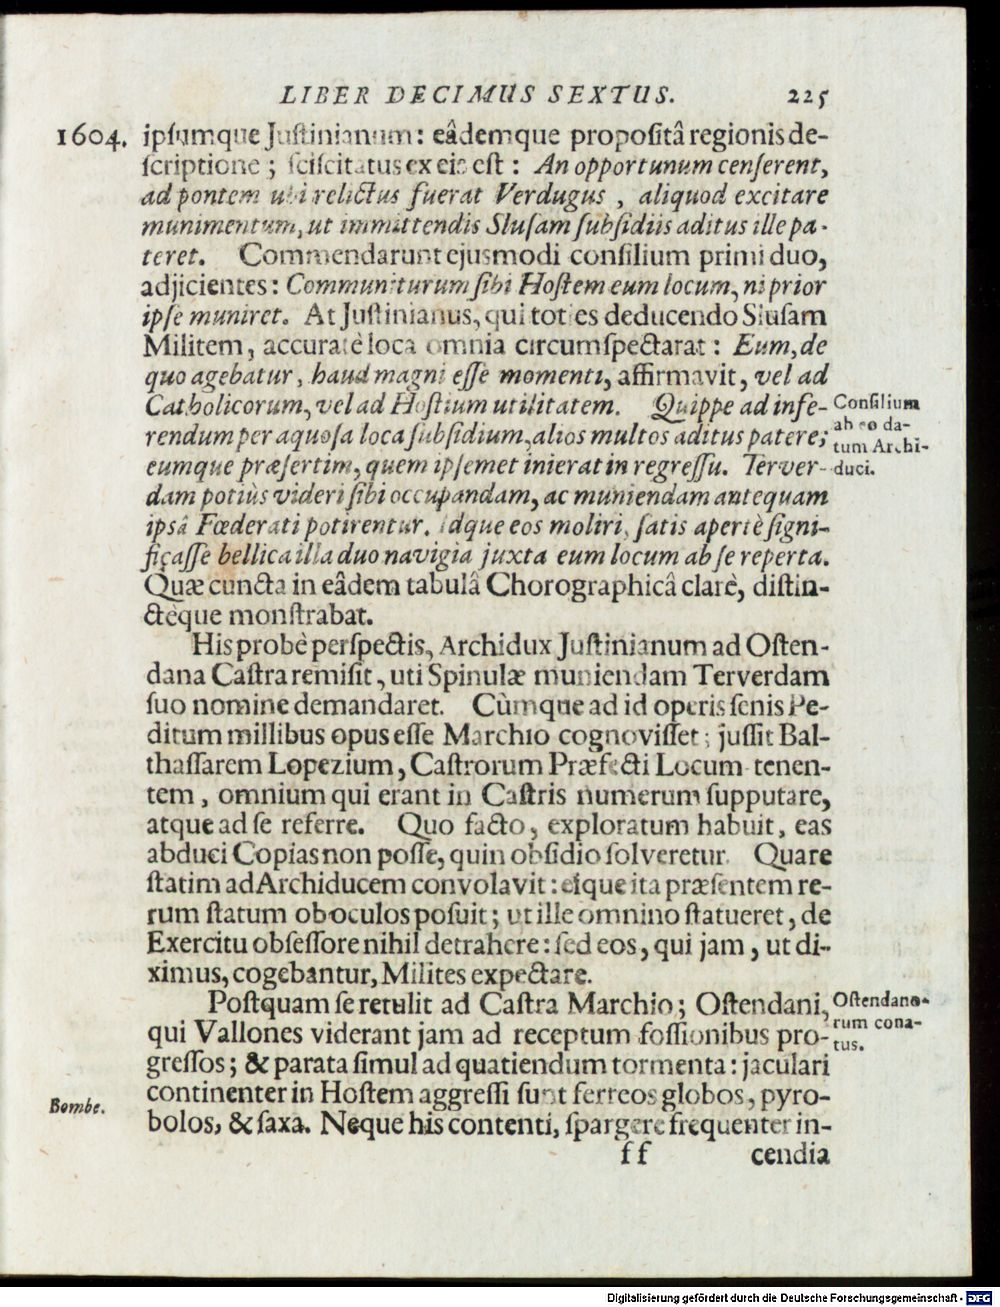 LIBER DECIMUS SEXTUS. 225
1604. ipſumque Juſtinianum: eâdemque propoſitâ regionis de-
ſcriptione; ſciſcitatus ex eis eſt: An opportunum cenſerent,
ad pontem ubi relictus fuerat Verdugus, aliquod excitare
munimentum, ut immittendis Sluſam ſubſidiis aditus ille pa-
teret. Commendarunt ejusmodi conſilium primi duo,
adjicientes: Communiturum ſibi Hoſtem eum locum, ni prior
ipſe muniret. At Juſtinianus, qui toties deducendo Sluſam
Militem, accuratè loca omnia circumſpectarat: Eum, de
quo agebatur, haud magni eſſe momenti, affirmavit, vel ad
Catholicorum, vel ad Hoſtium utilitatem. Quippe ad infe-
rendum per aquoſa loca ſubſidium, alios multos aditus patere;
eumque præſertim, quem ipſemet inierat in regreſſu. Terver-
dam potiùs videri ſibi occupandam, ac muniendam antequam
ipsâ Fœderati potirentur. Idque eos moliri, ſatis apertè ſigni-
ficaſſe bellica illa duo navigia juxta eum locum ab ſe reperta.
Quæ cuncta in eâdem tabulâ Chorographicâ clarè, diſtin-
ctèque monſtrabat.
Conſilium
ab eo da-
tum Archi-
duci.
His probè perſpectis, Archidux Juſtinianum ad Oſten-
dana Caſtra remiſit, uti Spinulæ muniendam Terverdam
ſuo nomine demandaret. Cùmque ad id operis ſenis Pe-
ditum millibus opus eſſe Marchio cognoviſſet; juſſit Bal-
thaſſarem Lopezium, Caſtrorum Præfecti Locum tenen-
tem, omnium qui erant in Caſtris numerum ſupputare,
atque ad ſe referre. Quo facto, exploratum habuit, eas
abduci Copias non poſſe, quin obſidio ſolveretur. Quare
ſtatim ad Archiducem convolavit: eique ita præſentem re-
rum ſtatum ob oculos poſuit; ut ille omnino ſtatueret, de
Exercitu obſeſſore nihil detrahere: ſed eos, qui jam, ut di-
ximus, cogebantur, Milites expectare.
Poſtquam ſe retulit ad Caſtra Marchio; Oſtendani,
qui Vallones viderant jam ad receptum foſſionibus pro-
greſſos; & parata ſimul ad quatiendum tormenta: jaculari
continenter in Hoſtem aggreſſi ſunt ferreos globos, pyro-
bolos, & ſaxa. Neque his contenti, ſpargere frequenter in-
Oſtendano-
rum cona-
tus.
Bombe.
ff cendia
Digitalisierung gefördert durch die Deutsche Forschungsgemeinschaft - DFG